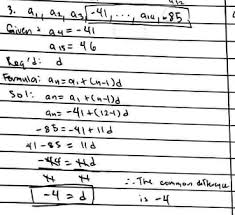 3. a₁, a₂, a₃, -41, ..., a₁₄, -85
Given: a₄ = -41
a₁₅ = 46
Req'd: d
Formula: aₙ = a₁ + (n-1)d
Sol: aₙ = a₁ + (n-1)d
aₙ = -41 + (12-1)d
-85 = -41 + 11d
41 - 85 = 11d
-44 = 11d
11 11
-4 = d
∴ The common difference
is -4